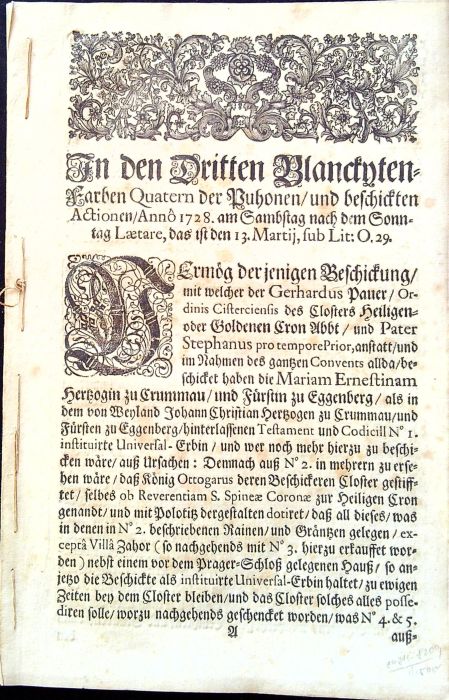 In den Dritten Blanckyten-
Farben Quatern der Puhonen/ und beschickten
Actionen/ Annô 1728. am Sambstag nach dem Sonn-
tag Lætare, das ist den 13. Martij, sub Lit: O. 29.
VErmög der jenigen Beschickung/
mit welcher der Gerhardus Pauer/ Or-
dinis Cisterciensis des Closters Heiligen-
oder Goldenen Cron Abbt/ und Pater
Stephanus pro tempore Prior, anstatt/ und
im Nahmen des gantzen Convents allda/ be-
schicket haben die Mariam Ernestinam
Hertzogin zu Crummau/ und Fürstin zu Eggenberg/ als in
dem von Weyland Johann Christian Hertzogen zu Crummau/ und
Fürsten zu Eggenberg/ hinterlassenen Testament und Codicill N° 1.
instituirte Universal-Erbin/ und wer noch mehr hierzu zu beschi-
cken wäre/ auß Ursachen: Demnach auß N° 2. in mehrern zu erse-
hen wäre/ daß König Ottogarus deren Beschickeren Closter gestiff-
tet/ selbes ob Reverentiam S. Spineæ Coronæ zur Heiligen Cron
genandt/ und mit Polotitz dergestalten dotiret/ daß all dieses/ was
in denen in N° 2. beschriebenen Rainen/ und Gräntzen gelegen/ ex-
ceptâ Villâ Zahor (so nachgehends mit N° 3. hierzu erkauffet wor-
den) nebst einem vor dem Prager-Schloß gelegenen Hauß/ so an-
jetzo die Beschickte als instituirte Universal-Erbin haltet/ zu ewigen
Zeiten bey dem Closter bleiben/ und das Closter solches alles posse-
diren solle/ worzu nachgehends geschencket worden/ was N° 4. & 5.
A
auß-